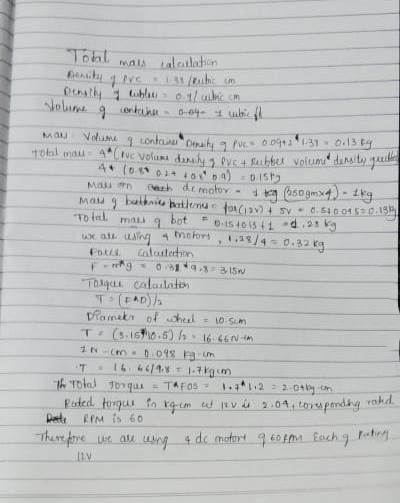 Total mass calculation
Density of PVC = 1.38 / cubic cm
Density of rubber = 0.9 / cubic cm
Volume of container = 0.09- 1 cubic ft
Mass = Volume of container * Density of PVC = 1.38 = 0.13 kg
Total mass = 4*(PVC Volume density of PVC + Rubber volume * density
= 0.15 kg
Mass on dc motor = 1 kg (250gm x 4) = 1kg
Mass of batteries = (12V) + 5V =
Total mass of bot = 0.15+0.13+1 = 1.28 kg
we are using 4 motors, 1.28/4 = 0.32 kg
Force calculation
F = m*g = 0.32*9.8 = 3.15N
Torque calculation
T = (F*D)/2
Diameter of wheel = 10.5cm
T = (3.15*10.5)/2 = 16.66 N-cm
1N-cm = 0.098 kg-cm
T = 16.66/9.8 = 1.7 kg cm
Total Torque = T*FOS = 1.7*1.2 = 2.04 kg-cm
Rated torque in kg cm at 12V is 2.04, corresponding rated
RPM is 60
Therefore we are using 4 dc motors of 60 RPM Each of Rating
12V